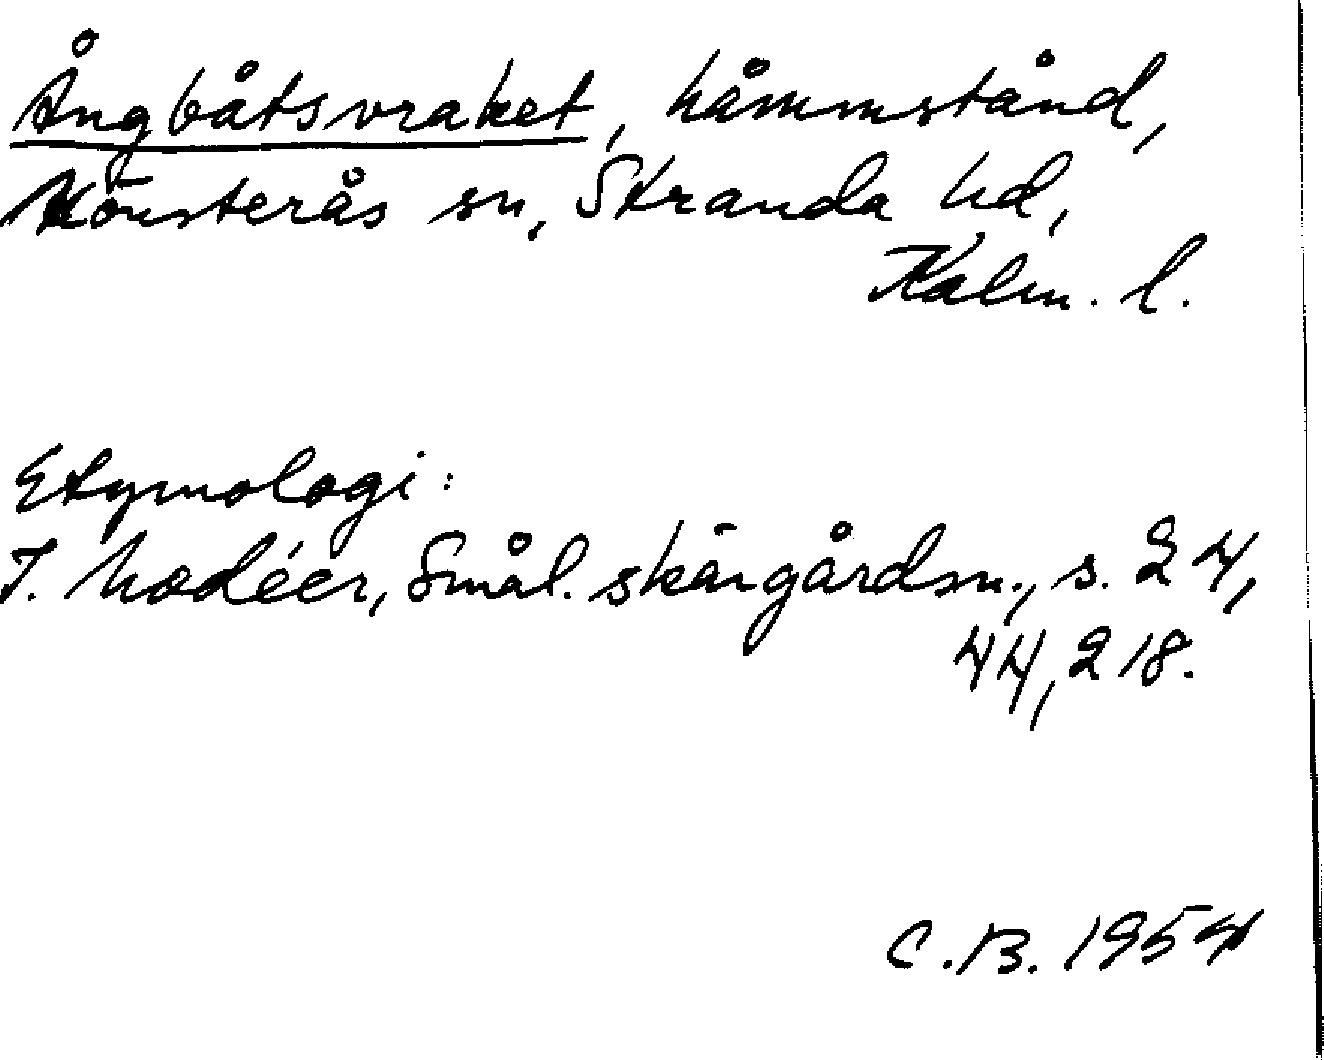 Ångbåtsvraket, håmmstånd,
Mönsterås sn, Stranda hd,
Kalm. l.
Etymologi:
I. Modéer, Smål. skärgårdsn., s. 24,
44, 218.
C.B. 1954